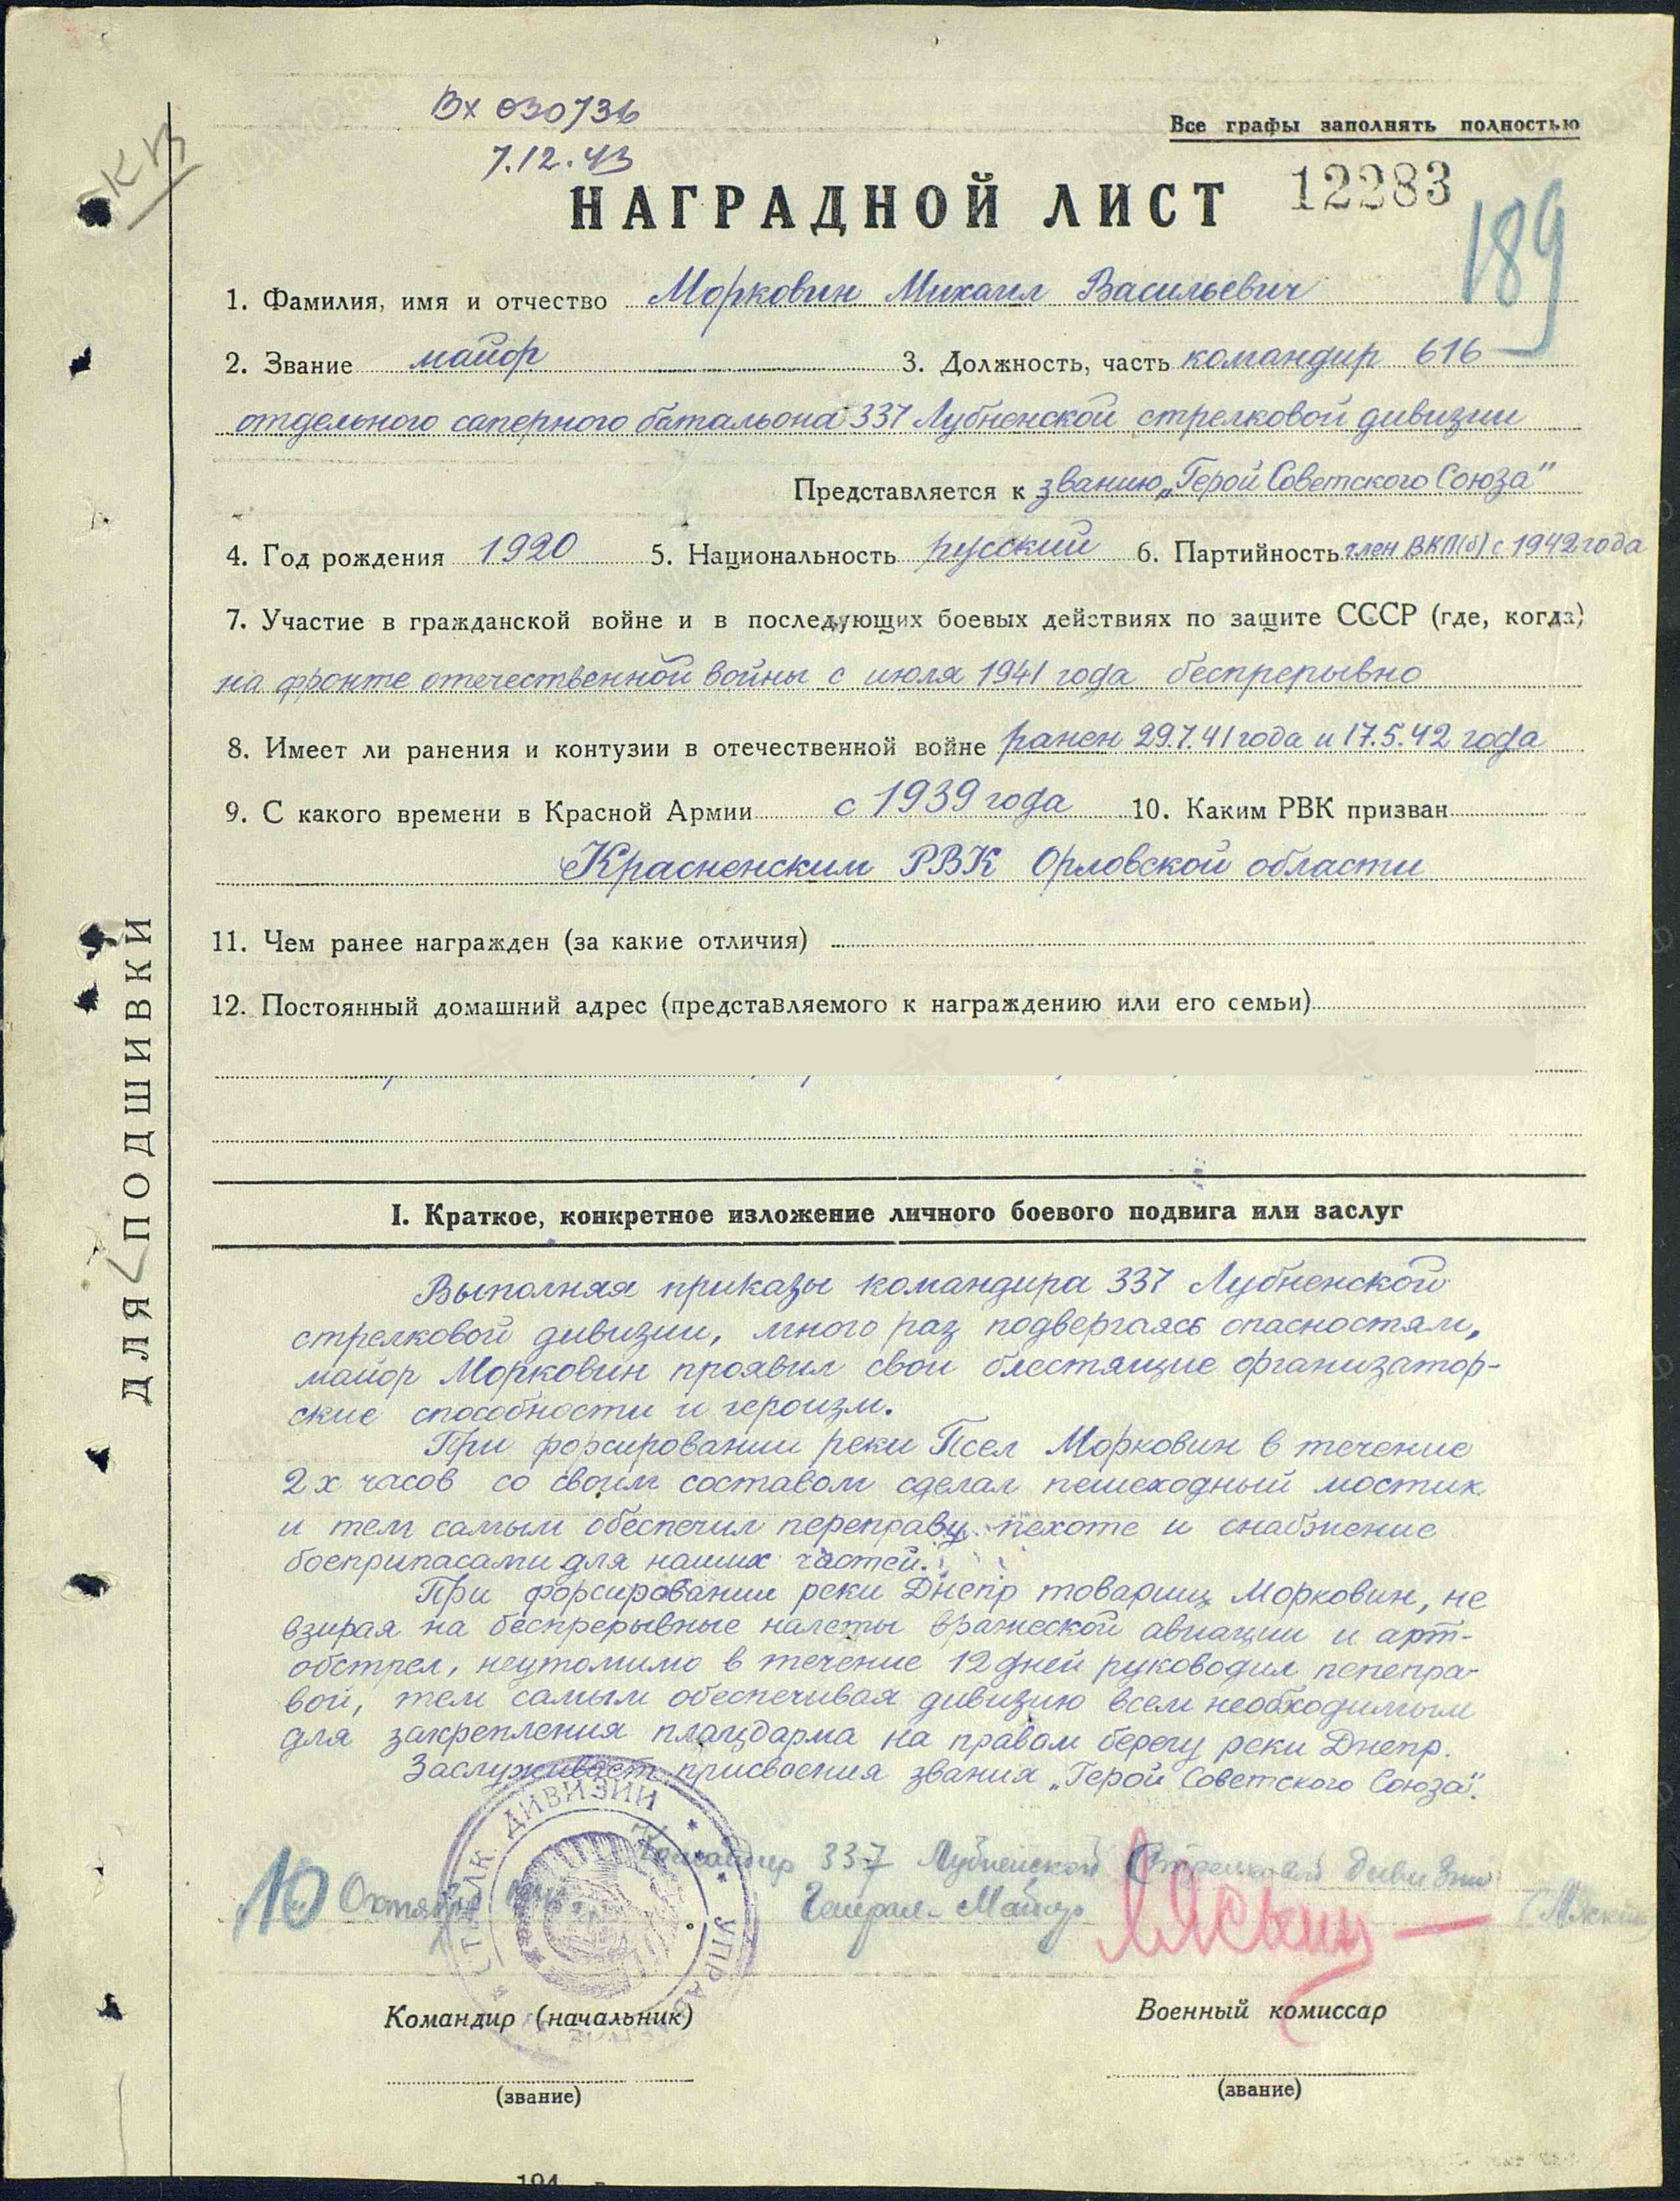 Вх 030736
7.12.43
Все графы заполнять полностью
НАГРАДНОЙ ЛИСТ 12283
189
1. Фамилия, имя и отчество Морковин Михаил Васильевич
2. Звание майор 3. Должность, часть командир 616
отдельного саперного батальона 337 Лубненской стрелковой дивизии
Представляется к званию „Герой Советского Союза"
4. Год рождения 1920 5. Национальность русский 6. Партийность член ВКП(б) с 1942 года
7. Участие в гражданской войне и в последующих боевых действиях по защите СССР (где, когда)
на фронте отечественной войны с июля 1941 года беспрерывно
8. Имеет ли ранения и контузии в отечественной войне ранен 29.7.41 года и 17.5.42 года
9. С какого времени в Красной Армии с 1939 года 10. Каким РВК призван
Красненским РВК Орловской области
11. Чем ранее награжден (за какие отличия)
12. Постоянный домашний адрес (представляемого к награждению или его семьи)
ДЛЯ ПОДШИВКИ
I. Краткое, конкретное изложение личного боевого подвига или заслуг
Выполняя приказы командира 337 Лубненской
стрелковой дивизии, много раз подвергаясь опасностям,
майор Морковин проявил свои блестящие организатор-
ские способности и героизм.
При форсировании реки Псел Морковин в течение
2х часов со своим составом сделал пешеходный мостик
и тем самым обеспечил переправу пехоте и снабжение
боеприпасами для наших частей.
При форсировании реки Днепр товарищ Морковин, не
взирая на беспрерывные налеты вражеской авиации и арт-
обстрел, неутомимо в течение 12 дней руководил пепепра-
вой, тем самым обеспечивая дивизию всем необходимым
для закрепления плацдарма на правом берегу реки Днепр.
Заслуживает присвоения звания „Герой Советского Союза".
СТРЕЛК. ДИВИЗИИ УПРАВЛЕНИЕ
Командир 337 Лубненской Стрелковой дивизии
10 Октября Генерал-Майор
Командир (начальник) Военный комиссар
(звание) (звание)
194 г.